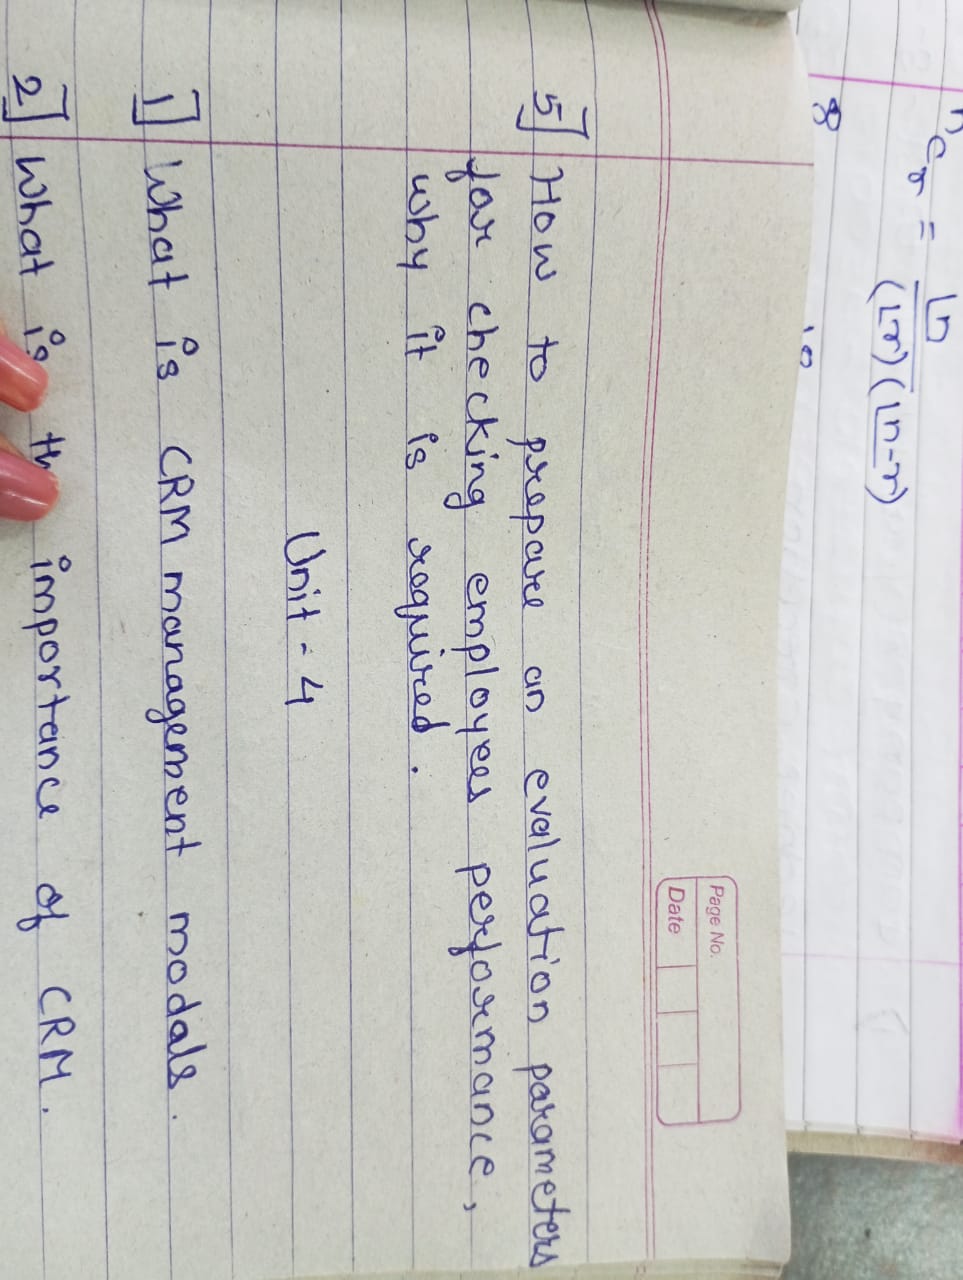 nCr = ⌊n
(⌊r) (⌊n-r)
8
10
Page No.
Date
5] How to prepare an evaluation parameters
for checking employees performance,
why it is required.
Unit - 4
1] What is CRM management modals.
2] What is the importance of CRM.